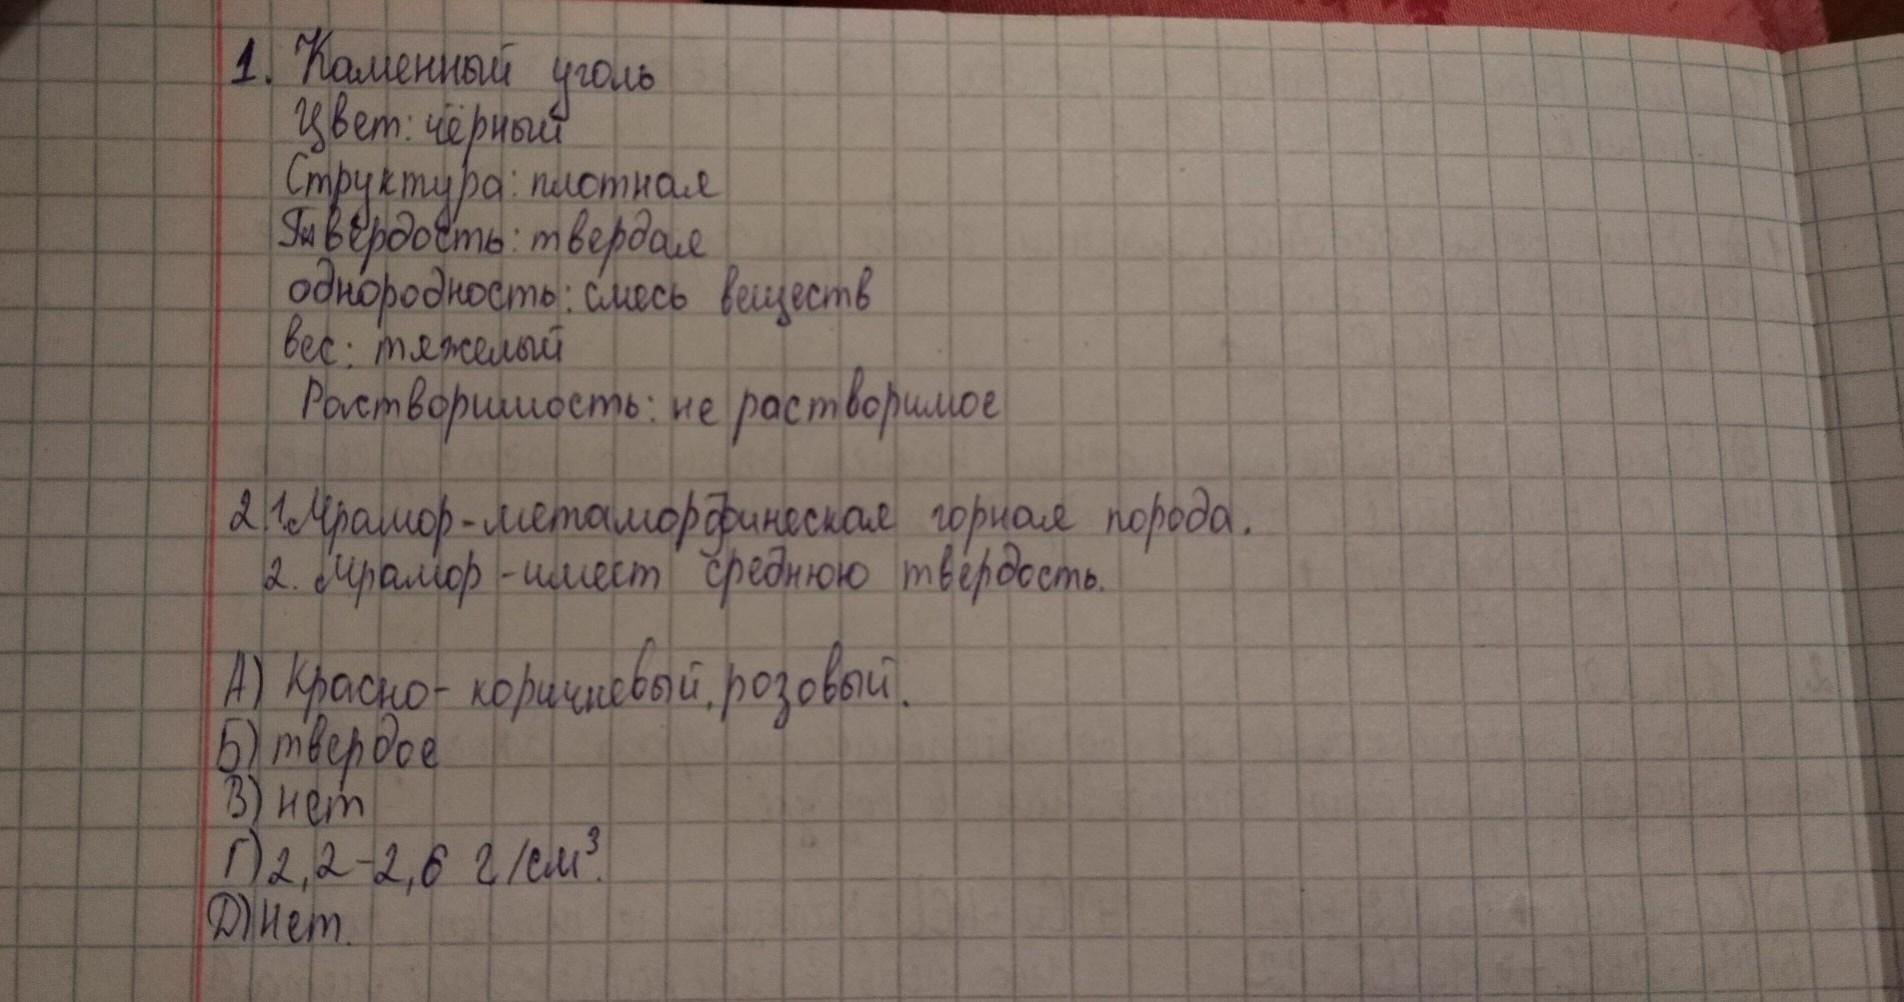 1. Каменный уголь
Цвет: чёрный
Структура: плотная
Твёрдость: твердая
однородность: смесь веществ
вес: тяжелый
Растворимость: не растворимое
2.1. Мрамор - метаморфическая горная порода.
2. Мрамор - имеет среднюю твердость.
А) Красно- коричневый, розовый.
Б) твердое
В) нет
Г) 2,2-2,6 г/см³.
Д) нет.